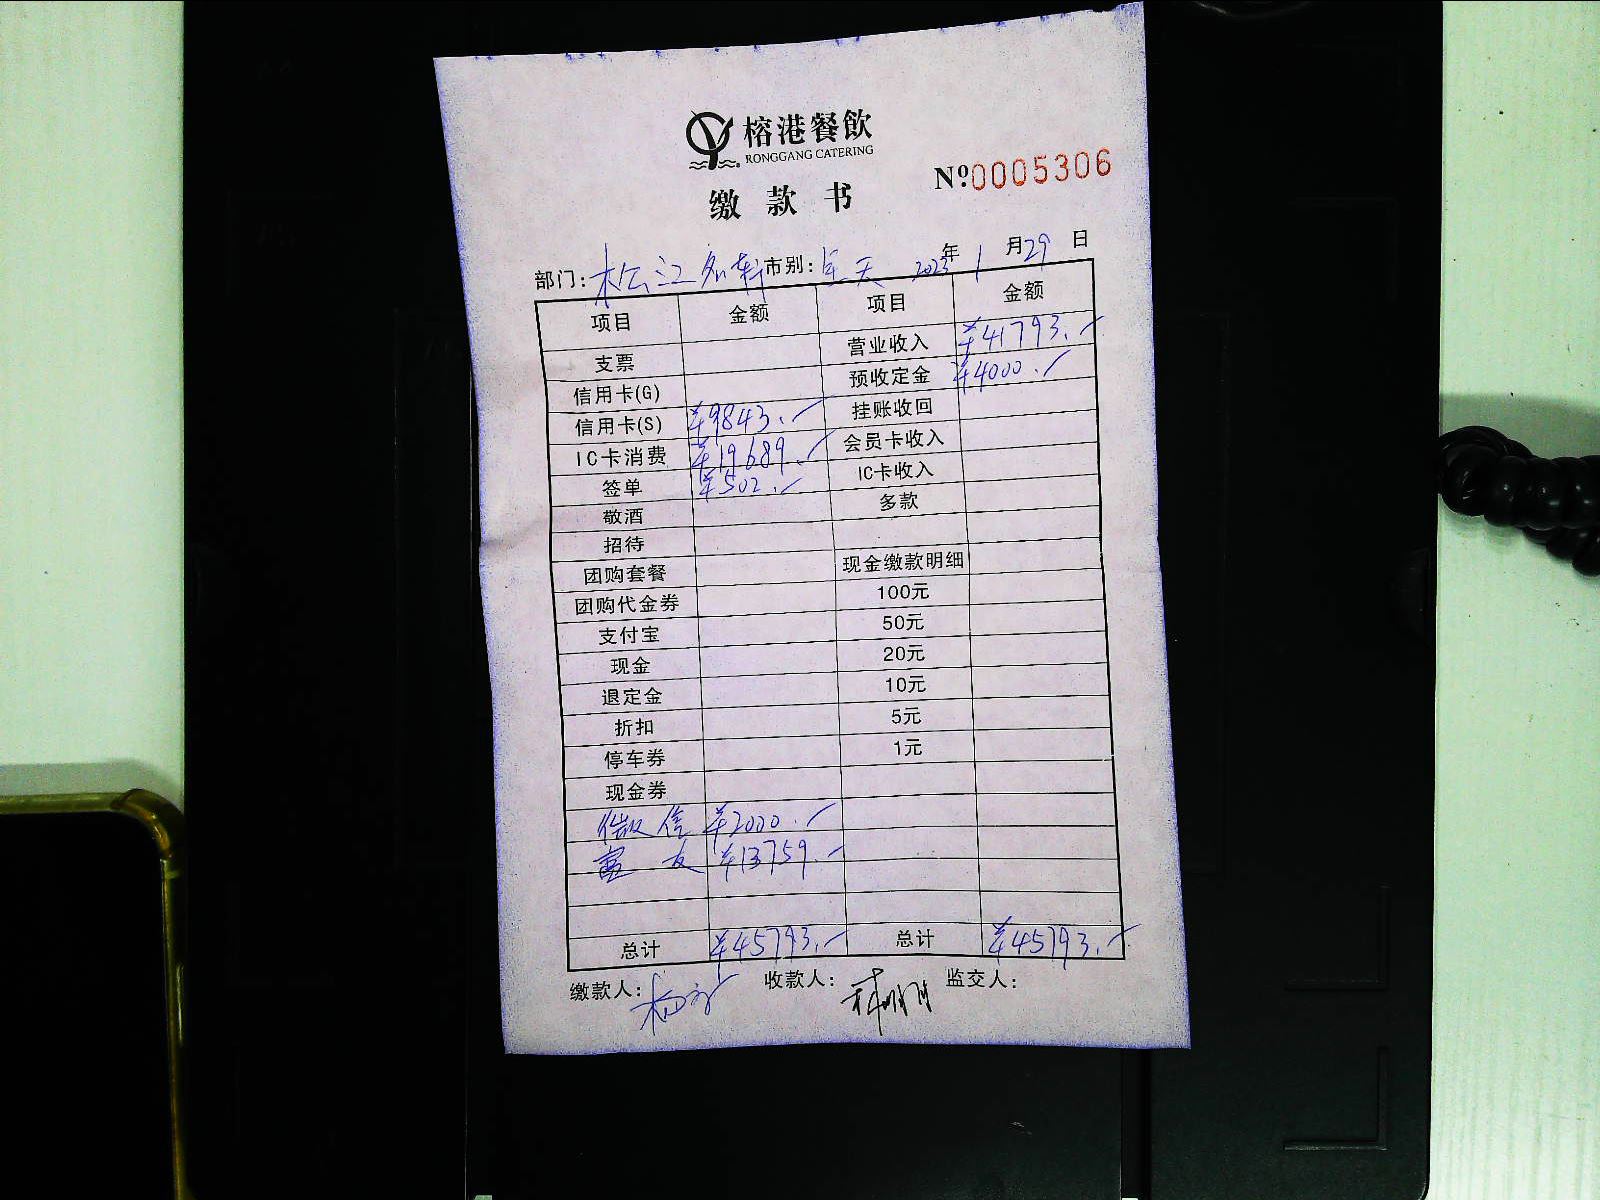 榕港餐飲
RONGGANG CATERING
缴款书
Nº0005306
部门: 松江名轩 市别: 全天 2023年 1月29日
项目 金额 项目 金额
支票 营业收入 ¥41793.
信用卡(G) 预收定金 ¥4000.
信用卡(S) ¥9843. 挂账收回
IC卡消费 ¥19689. 会员卡收入
签单 ¥502. IC卡收入
敬酒 多款
招待
团购套餐 现金缴款明细
团购代金券 100元
支付宝 50元
现金 20元
退定金 10元
折扣 5元
停车券 1元
现金券
微信 ¥2000.
富友 ¥13759.
总计 ¥45793. 总计 ¥45793.
缴款人: 收款人: 监交人: